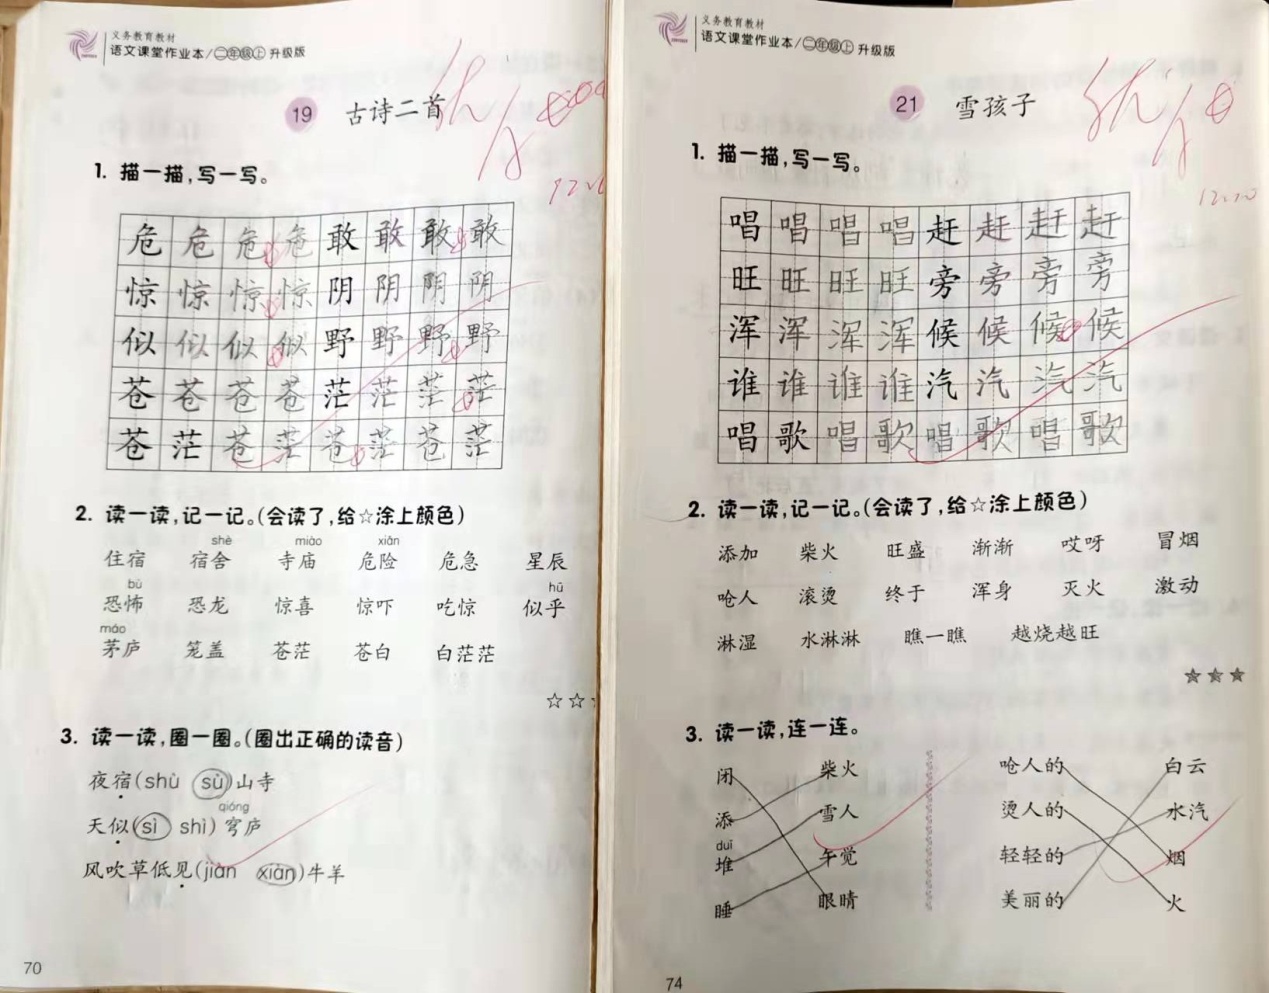 义务教育教材
语文课堂作业本/二年级上 升级版
19 古诗二首
优
12.6
1. 描一描,写一写。
危 危 危 危 敢 敢 敢 敢
惊 惊 惊 惊 阴 阴 阴 阴
似 似 似 似 野 野 野 野
苍 苍 苍 苍 茫 茫 茫 茫
苍 茫 苍 茫 苍 茫 苍 茫
2. 读一读,记一记。(会读了,给☆涂上颜色)
shè miào xiǎn
住宿 宿舍 寺庙 危险 危急 星辰
bù hū
恐怖 恐龙 惊喜 惊吓 吃惊 似乎
máo
茅庐 笼盖 苍茫 苍白 白茫茫
☆☆
3. 读一读,圈一圈。(圈出正确的读音)
夜宿(shù sù)山寺
qióng
天似(sì shì)穹庐
风吹草低见(jiàn xiàn)牛羊
70
义务教育教材
语文课堂作业本/二年级上 升级版
21 雪孩子
优
12.10
1. 描一描,写一写。
唱 唱 唱 唱 赶 赶 赶 赶
旺 旺 旺 旺 旁 旁 旁 旁
浑 浑 浑 浑 候 候 候 候
谁 谁 谁 谁 汽 汽 汽 汽
唱 歌 唱 歌 唱 歌 唱 歌
2. 读一读,记一记。(会读了,给☆涂上颜色)
添加 柴火 旺盛 渐渐 哎呀 冒烟
呛人 滚烫 终于 浑身 灭火 激动
淋湿 水淋淋 瞧一瞧 越烧越旺
☆☆☆
3. 读一读,连一连。
闭 柴火 呛人的 白云
添 雪人 烫人的 水汽
duī
堆 午觉 轻轻的 烟
睡 眼睛 美丽的 火
74